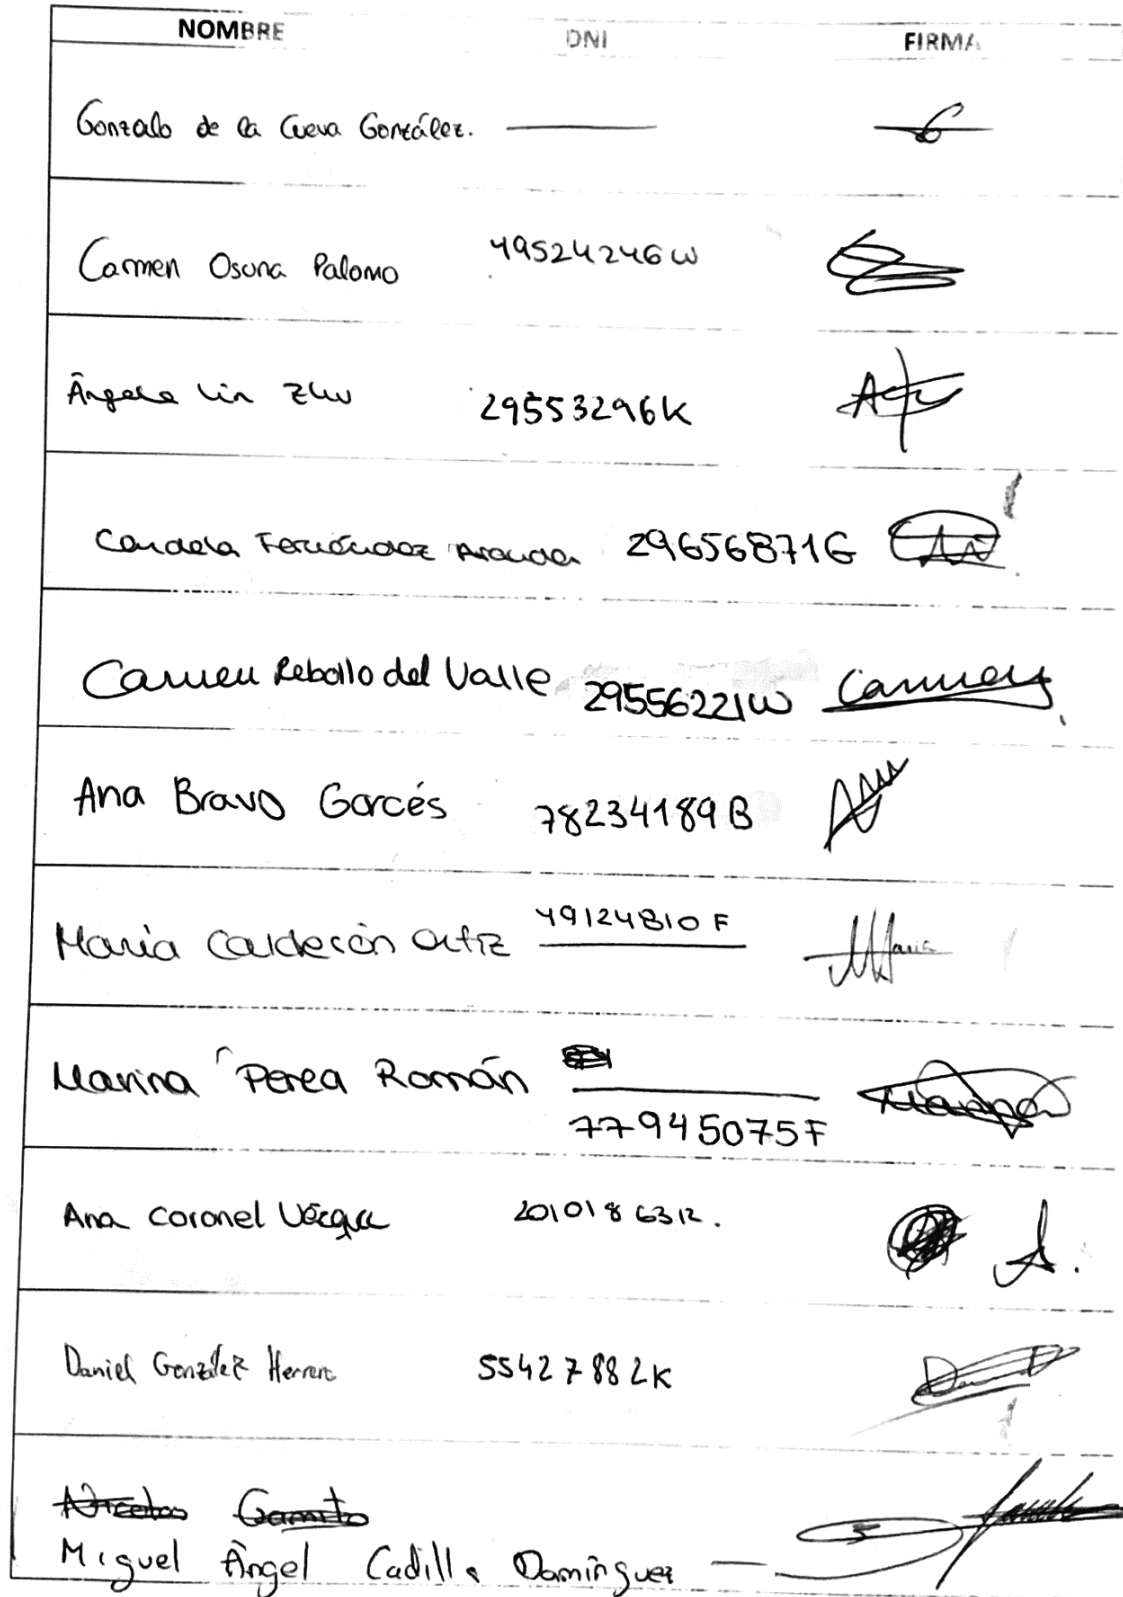 NOMBRE DNI FIRMA
Gonzalo de la Cueva González. ——
Carmen Osuna Palomo 49524246W
Ángela Lin Zhu 29553296K
Candela Fernández Aranda 29656871G
Carmen Rebollo del Valle 29556221W Carmen
Ana Bravo Garcés 78234189B
María Calderón Ortiz 49124810F María
Marina Perea Román
77945075F
Ana Coronel 20101863R. A.
Daniel González Herrera 55427882K
Nicolas Garrito
Miguel Ángel Cadilla Domínguez —